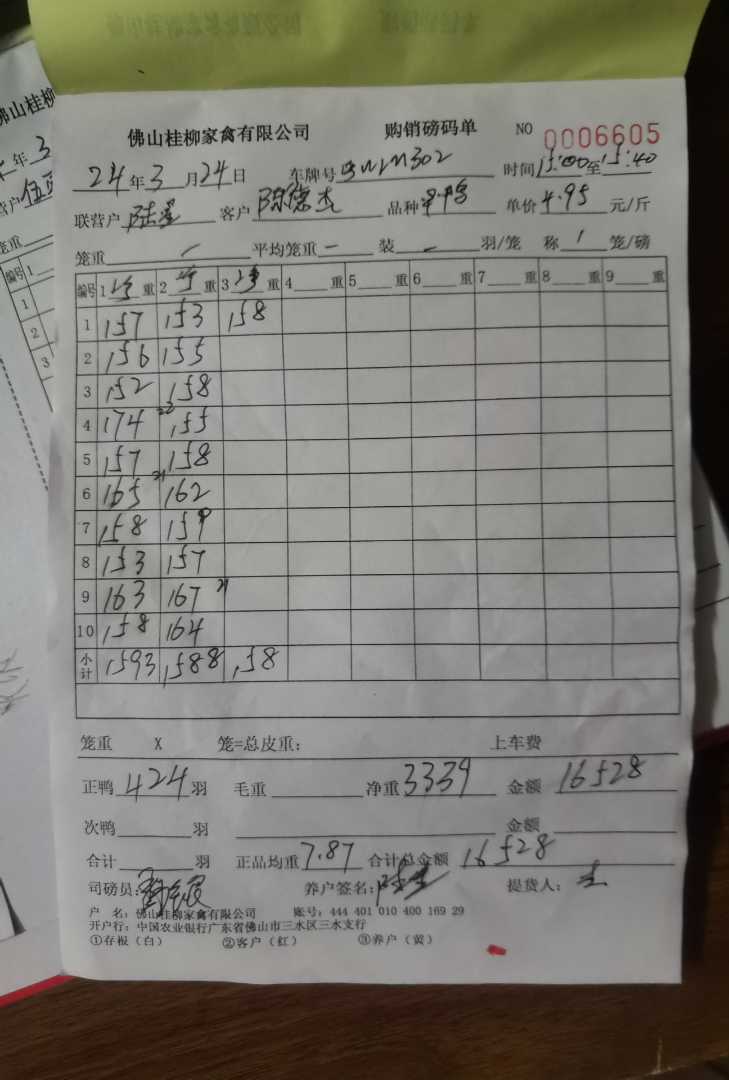 佛山桂柳家禽有限公司 购销磅码单 NO 0006605
24年3月24日 车牌号 302 时间15:00至15:40
联营户 客户 陈德杰 品种 单价4.95元/斤
笼重 / 平均笼重 — 装 — 羽/笼 称 1 笼/磅
编号 1 净 重 2 净 重 3 净 重 4 重 5 重 6 重 7 重 8 重 9 重
1 157 153 158
2 156 155
3 152 158
4 174 22 155
5 157 158
6 165 21 162
7 158 159
8 153 157
9 163 167 21
10 158 164
小计 1593 1588 158
笼重 X 笼=总皮重: 上车费
正鸭 424 羽 毛重 净重 3339 金额 16528
次鸭 羽 金额
合计 羽 正品均重 7.87 合计总金额 16528
司磅员: 养户签名: 提货人:
户 名: 佛山桂柳家禽有限公司 账号: 444 401 010 400 169 29
开户行: 中国农业银行广东省佛山市三水区三水支行
①存根(白) ②客户(红) ③养户(黄)
佛山桂柳
年3
编号 1
1
2
3